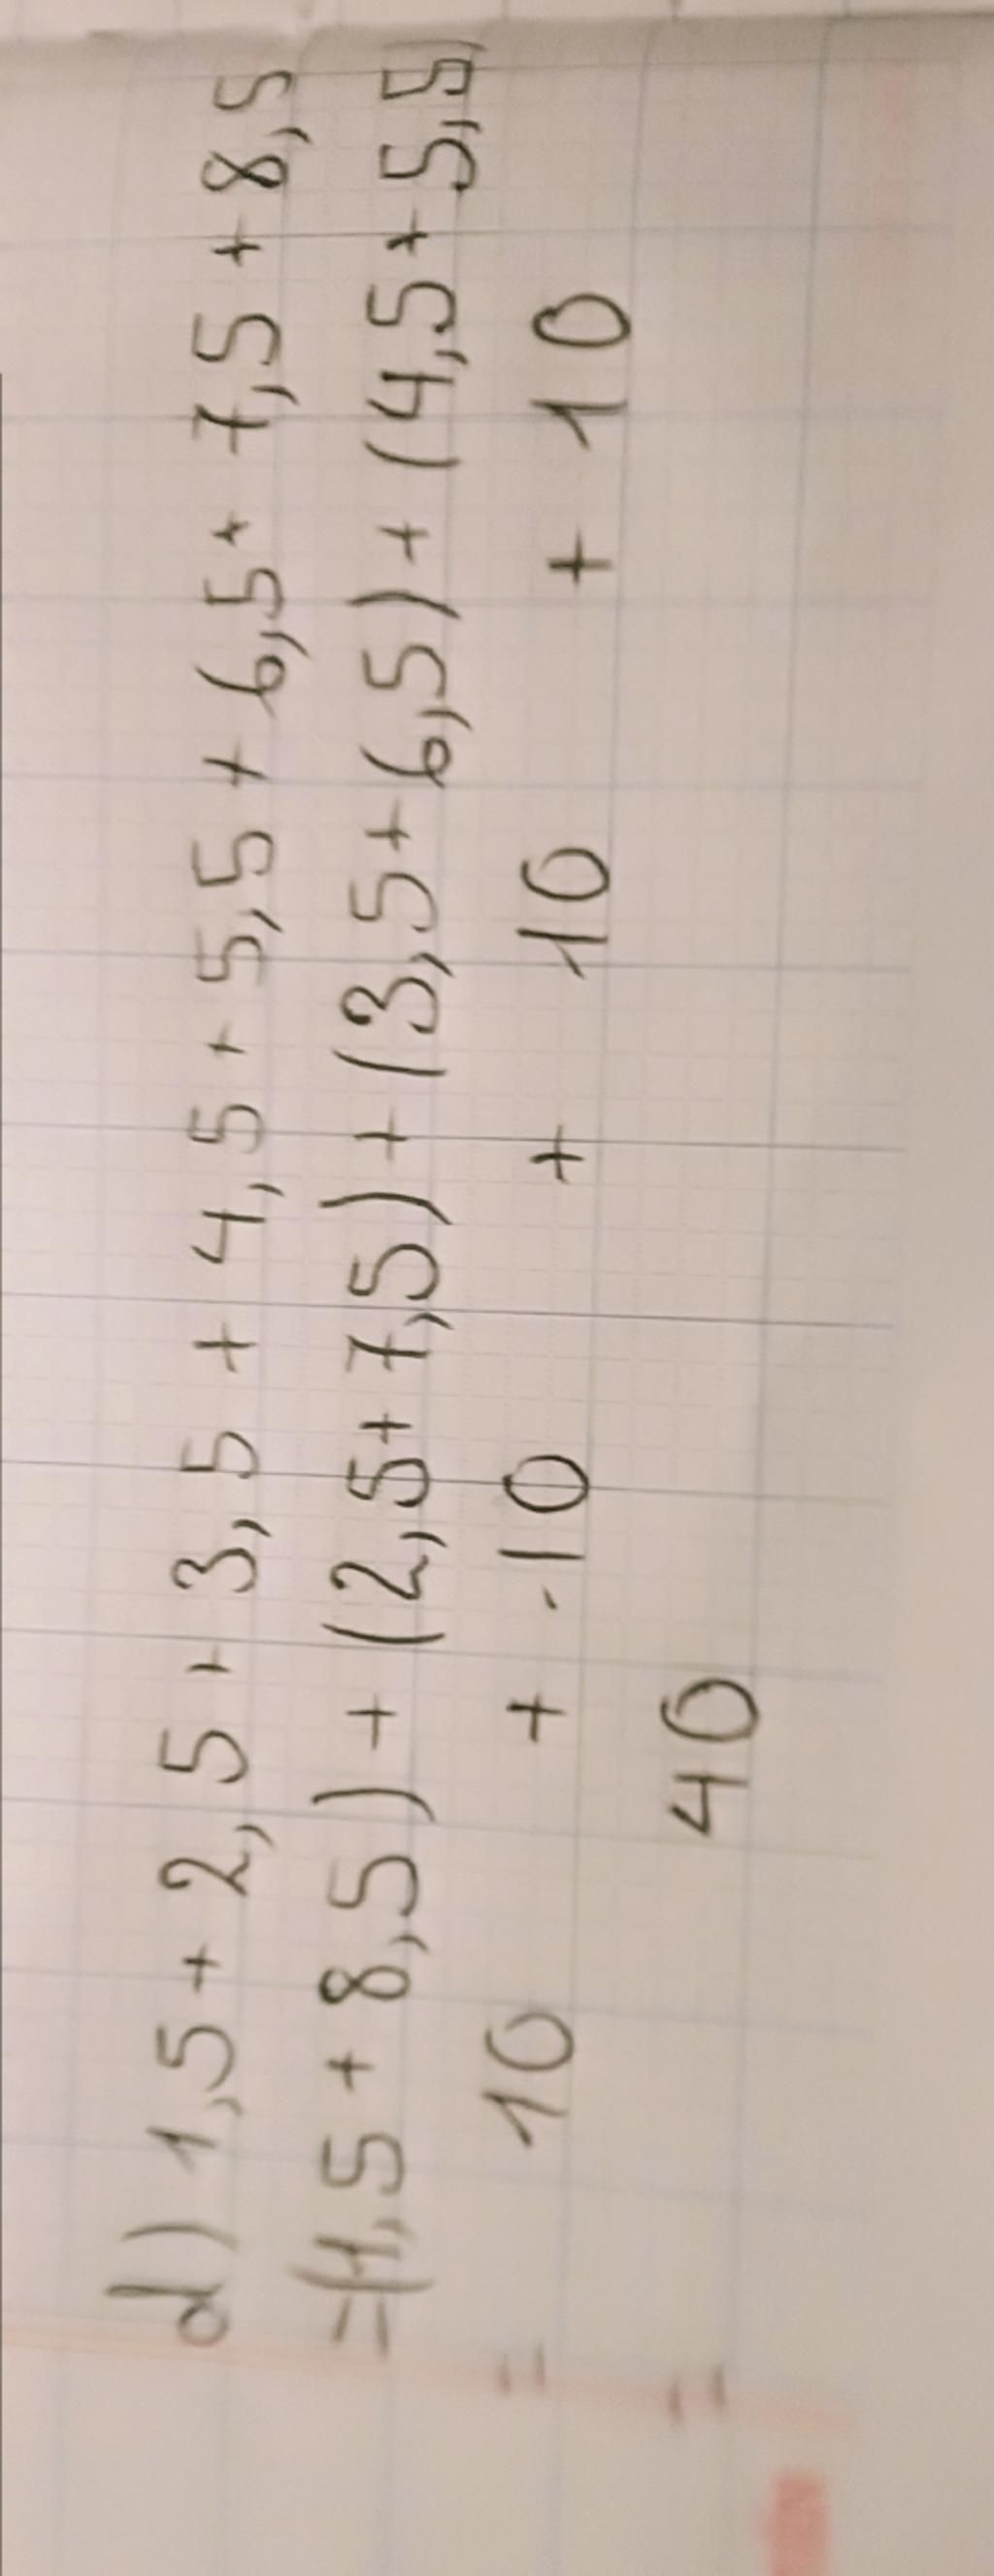 d) 1,5 + 2,5 + 3,5 + 4,5 + 5,5 + 6,5 + 7,5 + 8,5
=(1,5 + 8,5) + (2,5 + 7,5) + (3,5 + 6,5) + (4,5 + 5,5)
= 10 + 10 + 10 + 10
= 40